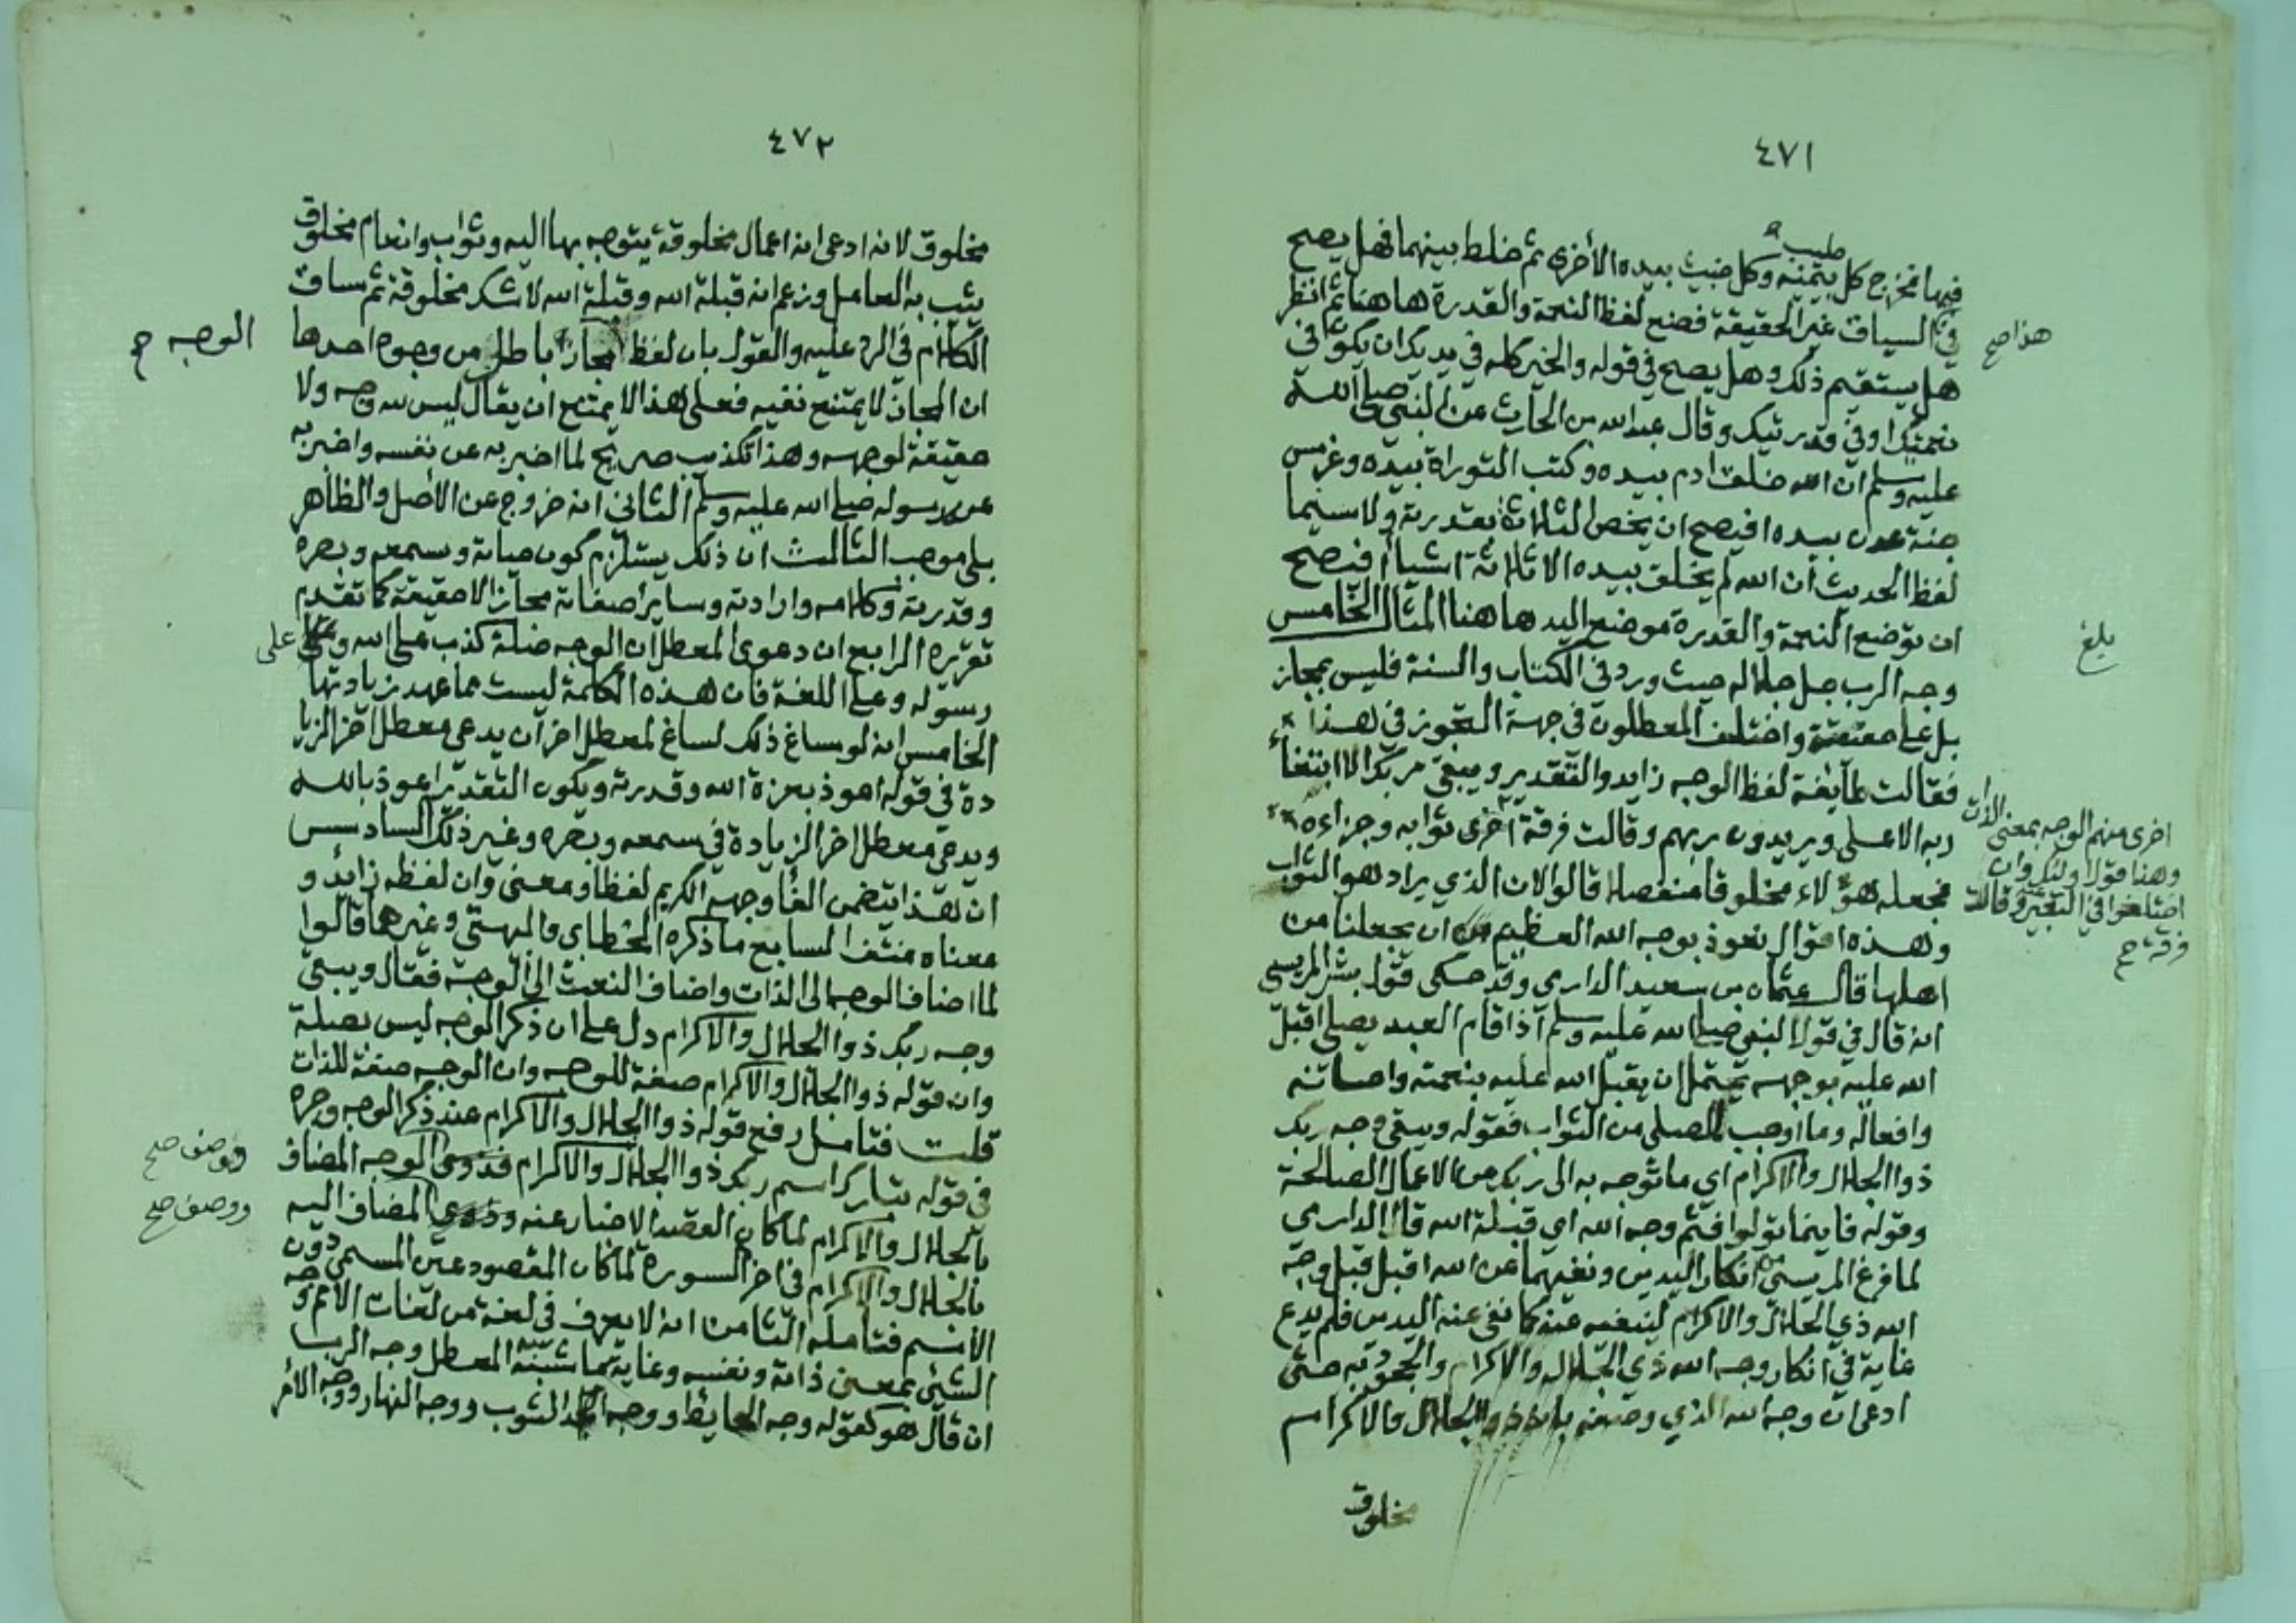 ٤٧١
طيب
فيها فخرج كل بيمينه وكل خبيث بيده الأخرى ثم خلط بينهما فهل يصح
في السياق غير الحقيقة فضع لفظ النعمة والقدرة هاهنا ثم انظر
هذا صح
هل يستقيم ذلك وهل يصح في قوله والخير كله في يديك ان يكون في
نعمتك او في قدرتيك وقال عبد الله بن الحارث عن النبي صلى الله
عليه وسلم ان الله خلق ادم بيده وكتب التوراة بيده وغرس
جنة عدن بيده افيصح ان يخص الثلاثة بقدرته ولا سيما
لفظ الحديث ان الله لم يخلق بيده الا ثلاثة اشيا افيصح
ان توضع النعمة والقدرة موضع اليد هاهنا المثال الخامس
بلغ
وجه الرب جل جلاله حيث ورد في الكتاب والسنة فليس بمجاز
بل على حقيقته واختلف المعطلون في جهة التجوز في هذا
فقالت طايفة لفظ الوجه زايد والتقدير ويبقى ربك الا ابتغاء
ربه الاعلى ويريدون ربهم وقالت فرقة اخرى ثوابه وجزاءه
اخرى منهم الوجه بمعنى الذات
وهذا قول اولئك وان
اختلفوا في التعبير وقالت
فرقة صح
فجعله هؤلاء مخلوقا منفصلا قالوا لان الذي يراد هو الثواب
وهذه اقوال نعوذ بوجه الله العظيم من ان يجعلنا من
اهلها قال عثمان بن سعيد الدارمي وقد حكى قول بشر المريسي
انه قال في قول النبي صلى الله عليه وسلم اذا قام العبد يصلي اقبل
الله عليه بوجهه يحتمل ان يقبل الله عليه بنعمته واحسانه
وافعاله وما اوجب للمصلي من الثواب فقوله ويبقى وجه ربك
ذوا الجلال والاكرام اي ما توجه به الى ربك من الاعمال الصالحة
وقوله فاينما تولوا فثم وجه الله اي قبلة الله قال الدارمي
لما فرغ المريسي من انكار اليدين ونفيهما عن الله اقبل قبل وجه
الله ذي الجلال والاكرام لينفيه عنه كما نفى عنه اليدين فلم يدع
غاية في انكار وجه الله ذي الجلال والاكرام والجحود به حتى
ادعى ان وجه الله الذي وصفه بانه ذوا الجلال والاكرام
مخلوق
٤٧٢
مخلوق لانه ادعى انه اعمال مخلوقة يتوجه بها اليه وثواب وانعام مخلوق
يثيب به العامل وزعم انه قبلة الله وقبلة الله لا شك مخلوقة ثم ساق
الكلام في الرد عليه والقول بان لفظ مجاز باطل من وجوه احدها
الوجه صح
ان المجاز لا يمتنع نفيه فعلى هذا لا يمتنع ان يقال ليس لله وجه ولا
حقيقة لوجهه وهذا تكذيب صريح لما اخبر به عن نفسه واخبر به
عن رسوله صلى الله عليه وسلم الثاني انه خروج عن الأصل والظاهر
بلى موجب الثالث ان ذلك يستلزم كون حياته وسمعه وبصره
وقدرته وكلامه وارادته وساير صفاته مجازا لا حقيقة كما تقدم
تقريره الرابع ان دعوى المعطل ان الوجه صلة كذب على الله وعلى
على
رسوله وعلى اللغة فان هذه الكلمة ليست مما عهد زيادتها
الخامس انه لو ساغ ذلك لساغ لمعطل اخر ان يدعي معطل اخر الزيا
دة في قوله اعوذ بعزة الله وقدرته ويكون التقدير اعوذ بالله
ويدعي معطل اخر الزيادة في سمعه وبصره وغير ذلك السادس
ان هذا يتضمن الغا وجهه الكريم لفظا ومعنى وان لفظه زايد و
معناه منتف السابع ما ذكره الخطابي والبيهقي وغيرهما قالوا
لما اضاف الوجه الى الذات واضاف النعت الى الوجه فقال ويبقى
وجه ربك ذوا الجلال والاكرام دل على ان ذكر الوجه ليس بصلة
وان قوله ذوا الجلال والاكرام صفة للوجه وان الوجه صفة للذات
قلت فتامل رفع قوله ذوا الجلال والاكرام عند ذكر الوجه وجره
في قوله تبارك اسم ربك ذوا الجلال والاكرام فذوى الوجه المضاف
فوصف صح
بالجلال والاكرام لما كان القصد الاخبار عنه وذوي المضاف اليه
ووصف صح
بالجلال والاكرام في اخر السورة لما كان المقصود عين المسمى دون
الاسم فتامله الثامن انه لا يعرف في لغة من لغات الامم وجه
الشيئ بمعنى ذاته ونفسه وغاية ما شبه المعطل وجه الرب
ان قال هو كقوله وجه الحايط ووجه الثوب ووجه النهار ووجه الأمر